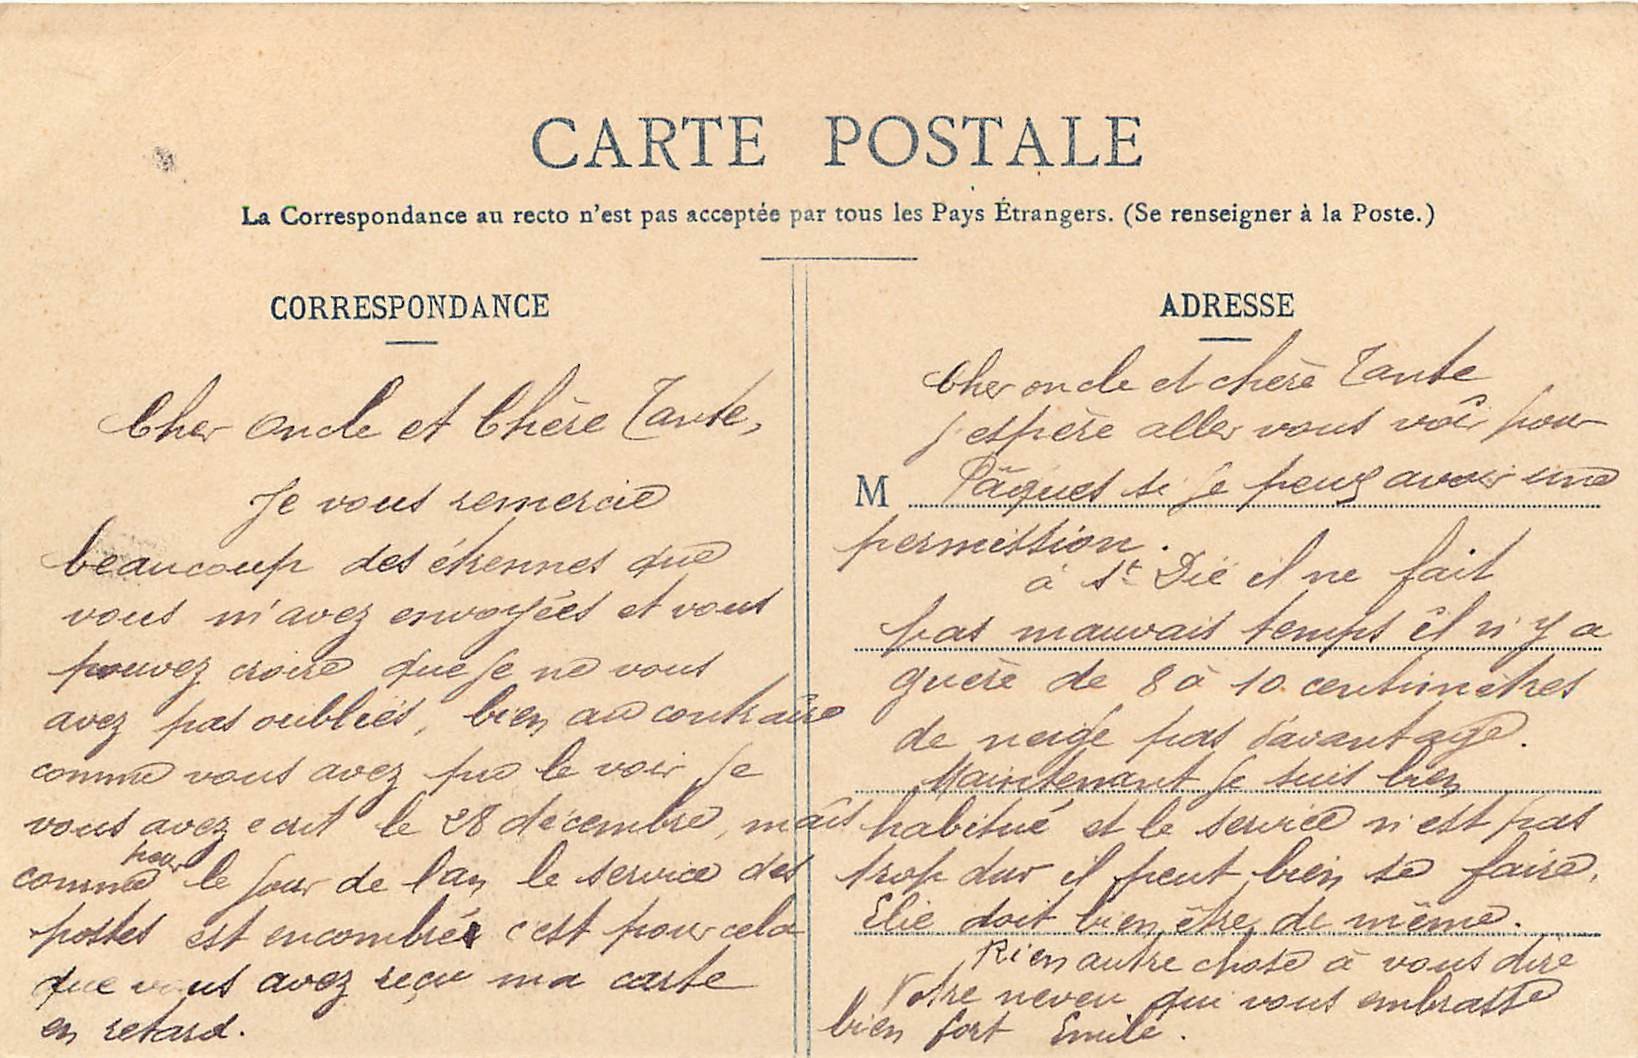 CARTE POSTALE
La Correspondance au recto n'est pas acceptée par tous les Pays Étrangers. (Se renseigner à la Poste.)
CORRESPONDANCE
Cher Oncle et Chère Tante,
Je vous remercie
beaucoup des étrennes que
vous m'avez envoyées et vous
pouvez croire que je ne vous
avez pas oubliés, bien au contraire
comme vous avez pu le voir je
vous avez ecrit le 28 décembre, mais
comme pour le jour de l'an le service des
postes est encombré c'est pour cela
que vous avez reçu ma carte
en retard.
ADRESSE
Cher oncle et chère Tante
j'espère aller vous voir pour
M Pâques si je peux avoir une
permission.
à St Dié il ne fait
pas mauvais temps il n'y a
guère de 8 à 10 centimètres
de neige pas d'avantage.
Maintenant je suis bien
habitué et le service n'est pas
trop dur il peut bien se faire,
Elie doit bien être de même.
Rien autre chose à vous dire
Votre neveu qui vous embrasse
bien fort Emile.